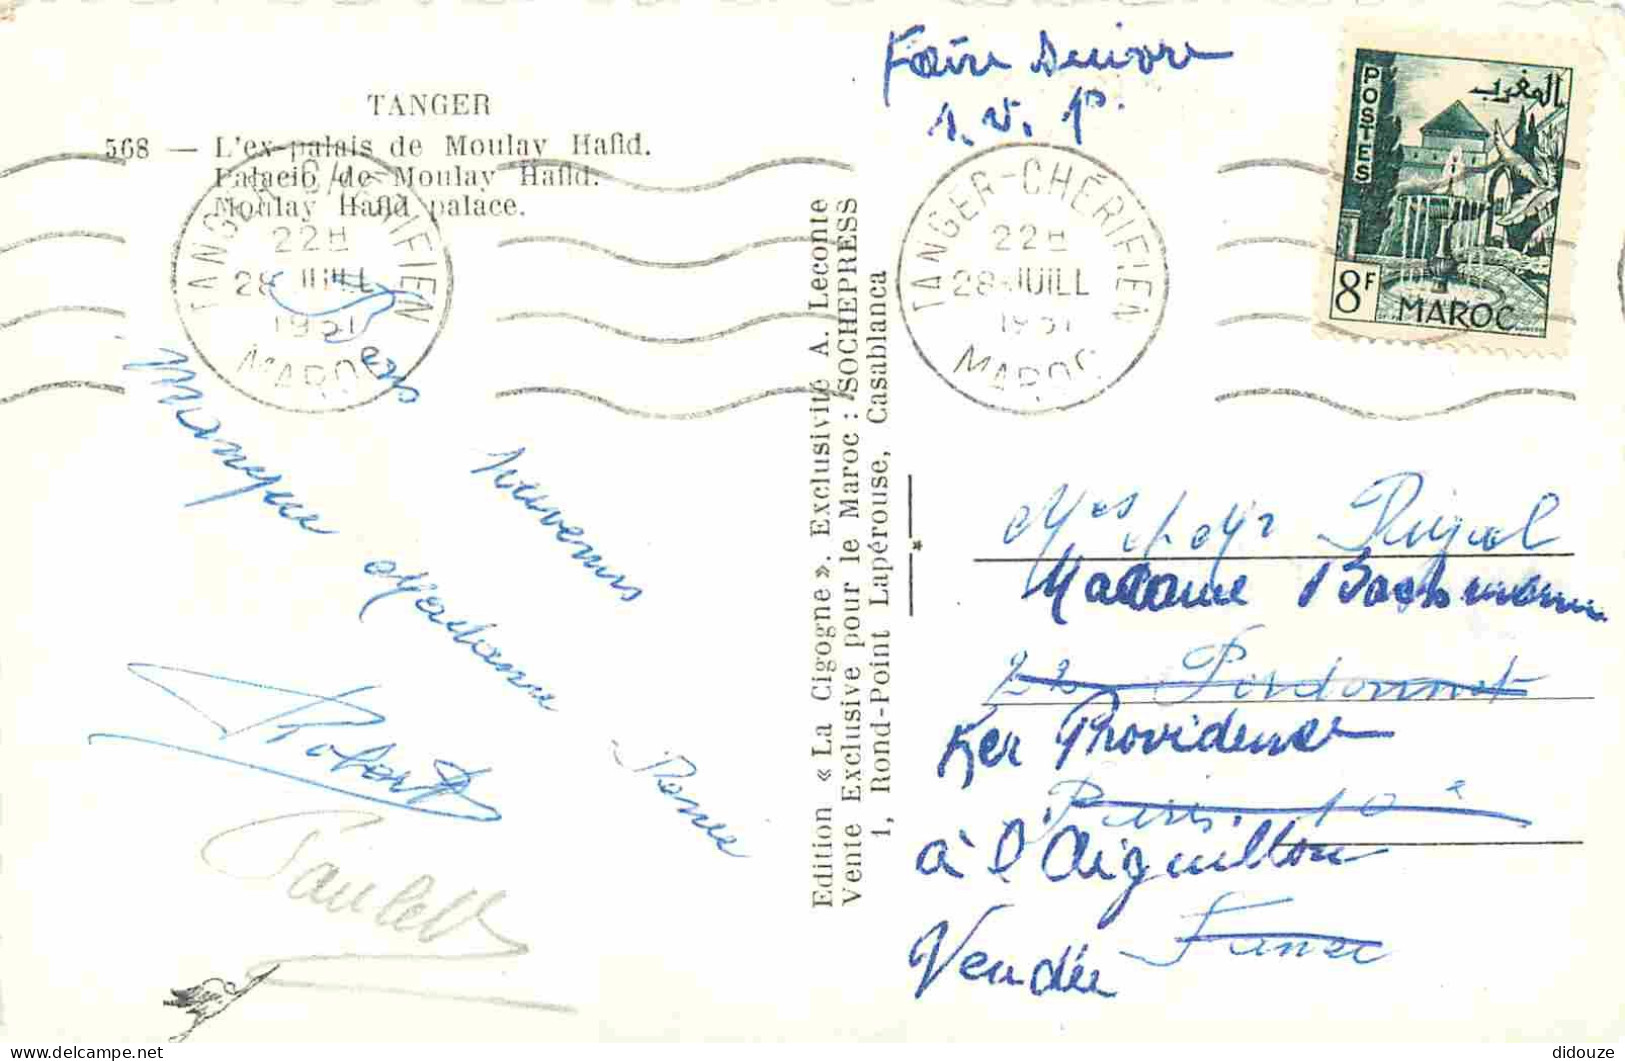 TANGER
568 — L'ex-palais de Moulay Hafid.
Palacio de Moulay Hafid.
Moulay Hafid palace.
TANGER-CHÉRIFIEN
22H
28 JUILL
1951
MAROC
Bons
souvenirs
Manque Madame
Renée
Robert
Paulette
Edition « La Cigogne ». Exclusivité A. Leconte
Vente Exclusive pour le Maroc : SOCHEPRESS
1, Rond-Point Lapérouse, Casablanca
Faire suivre
s. v. P.
TANGER-CHÉRIFIEN
22H
28 JUILL
1951
MAROC
POSTES
المغرب
8F
MAROC
Rigal
Madame
22 Perdonnet
Ker Providence
Paris 10e
à l'Aiguillon
France
Vendée
didouze
delcampe.net